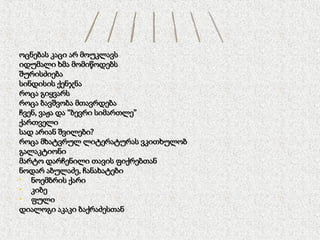 ოცნებას კაცი არ მოუკლავს
იდუმალი ხმა მომიწოდებს
შურისძიება
სინდისის ქენჯნა
როცა გიყვარს
როცა ბავშვობა მთავრდება
ჩვენ, ვაჟა და "ბევრი სიმართლე"
ქართველი
სად არიან შვილები?
როცა მხატვრულ ლიტერატურას ვკითხულობ
გალაკტიონი
მარტო დარჩენილი თავის ფიქრებთან
ნოდარ აბულაძე, ჩანახატები
ნოემბრის ქარი
კიბე
ფული
დიალოგი აკაკი ბაქრაძესთან